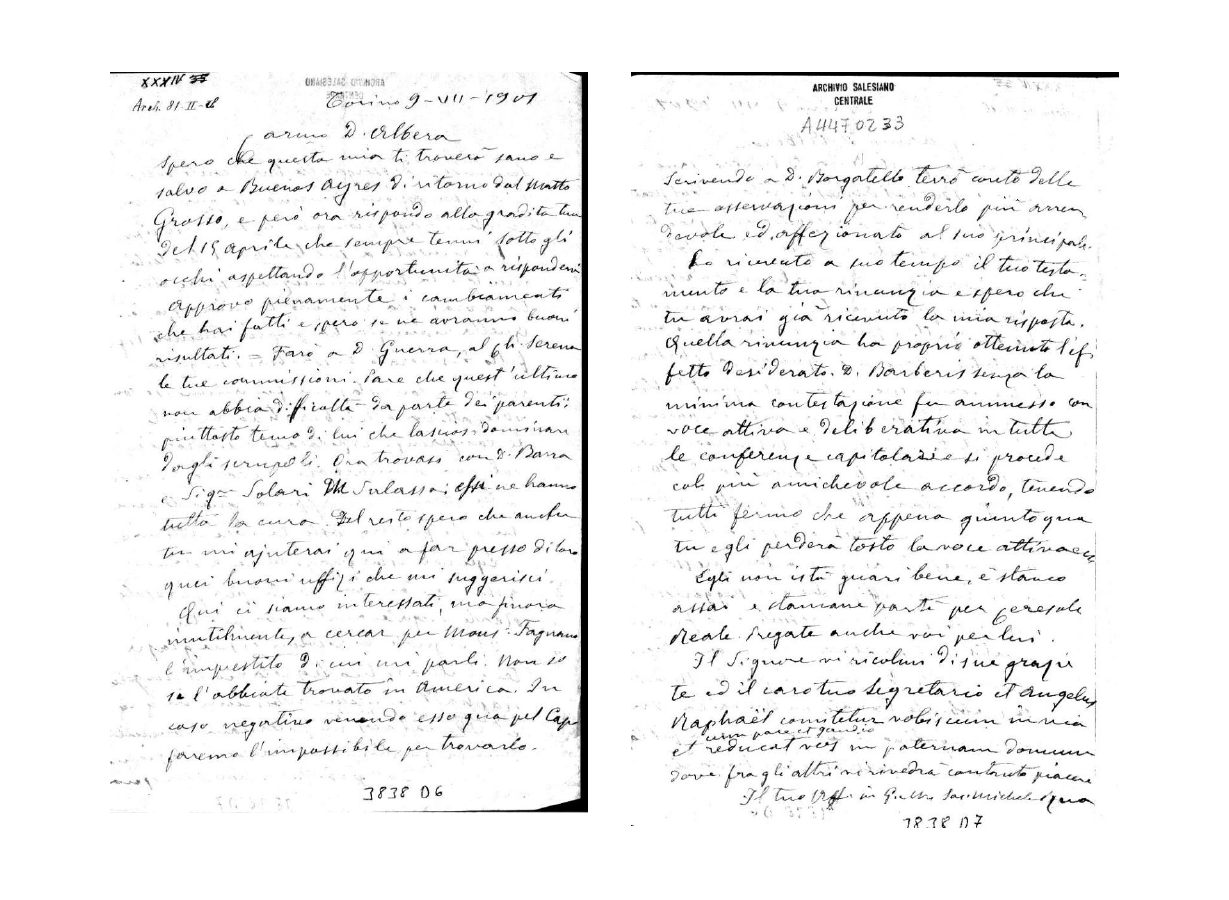 XXXIV 33
ARCHIVIO SALESIANO
CENTRALE
Arch. 81-II-
Torino 9-VII-1901
Carmo D. Albera
spero che questa mia ti troverà sano e
salvo a Buenos Ayres di ritorno dal Matto
Grosso, e però ora rispondo alla gradita tua
del 15 aprile che sempre tenni sotto gli
occhi aspettando l'opportunità a risponderti
Approvo pienamente i cambiamenti
che hai fatti e spero se ne avranno buoni
risultati. = Farò a D. Guerra, al Ch. Serena
le tue commissioni. Pare che quest'ultimo
non abbia difficoltà da parte dei parenti;
piuttosto temo di lui che lascisi dominare
dagli scrupoli. Ora trovasi con D. Barra
e Sigra Solari essi ne hanno
tutta la cura. Del resto spero che anche
tu mi ajuterai qui a far presso di loro
quei buoni uffizi che mi suggerisci.
Qui ci siamo interessati, ma finora
inutilmente, a cercar per Mons. Fagnano
l'imprestito di cui mi parli. Non so
se l'abbiate trovato in America. In
caso negativo venendo esso qua pel Capo
faremo l'impossibile per trovarlo.
3838 D6
ARCHIVIO SALESIANO
CENTRALE
A4470233
Scrivendo a D. Borgatello terrò conto delle
tue osservazioni per renderlo più arren
devole ed affezionato al suo principale.
Ho ricevuto a suo tempo il tuo testa-
mento e la tua rinunzia e spero che
tu avrai già ricevuto la mia risposta.
Quella rinunzia ha proprio ottenuto l'ef
fetto desiderato. D. Barberis senza la
minima contestazione fu ammesso con
voce attiva e deliberativa in tutte
le conferenze capitolari e si procede
col più amichevole accordo, tenendo
tutti fermo che appena giunto qua
tu egli perderà tosto la voce attiva ecc
Egli non istà guari bene, è stanco
assai e stamane parte per Ceresole
Reale. Pregate anche voi per lui.
Il Signore vi ricolmi di sue grazie
te ed il caro tuo Segretario et Angelus
Raphaël comitetur vobiscum in via
cum pace et gaudio
et reducat vos in paternam domum
dove fra gli altri vi rivedrà contento piacere
Il tuo aff. in G. e M. Sac. Michele Rua
3838 D7